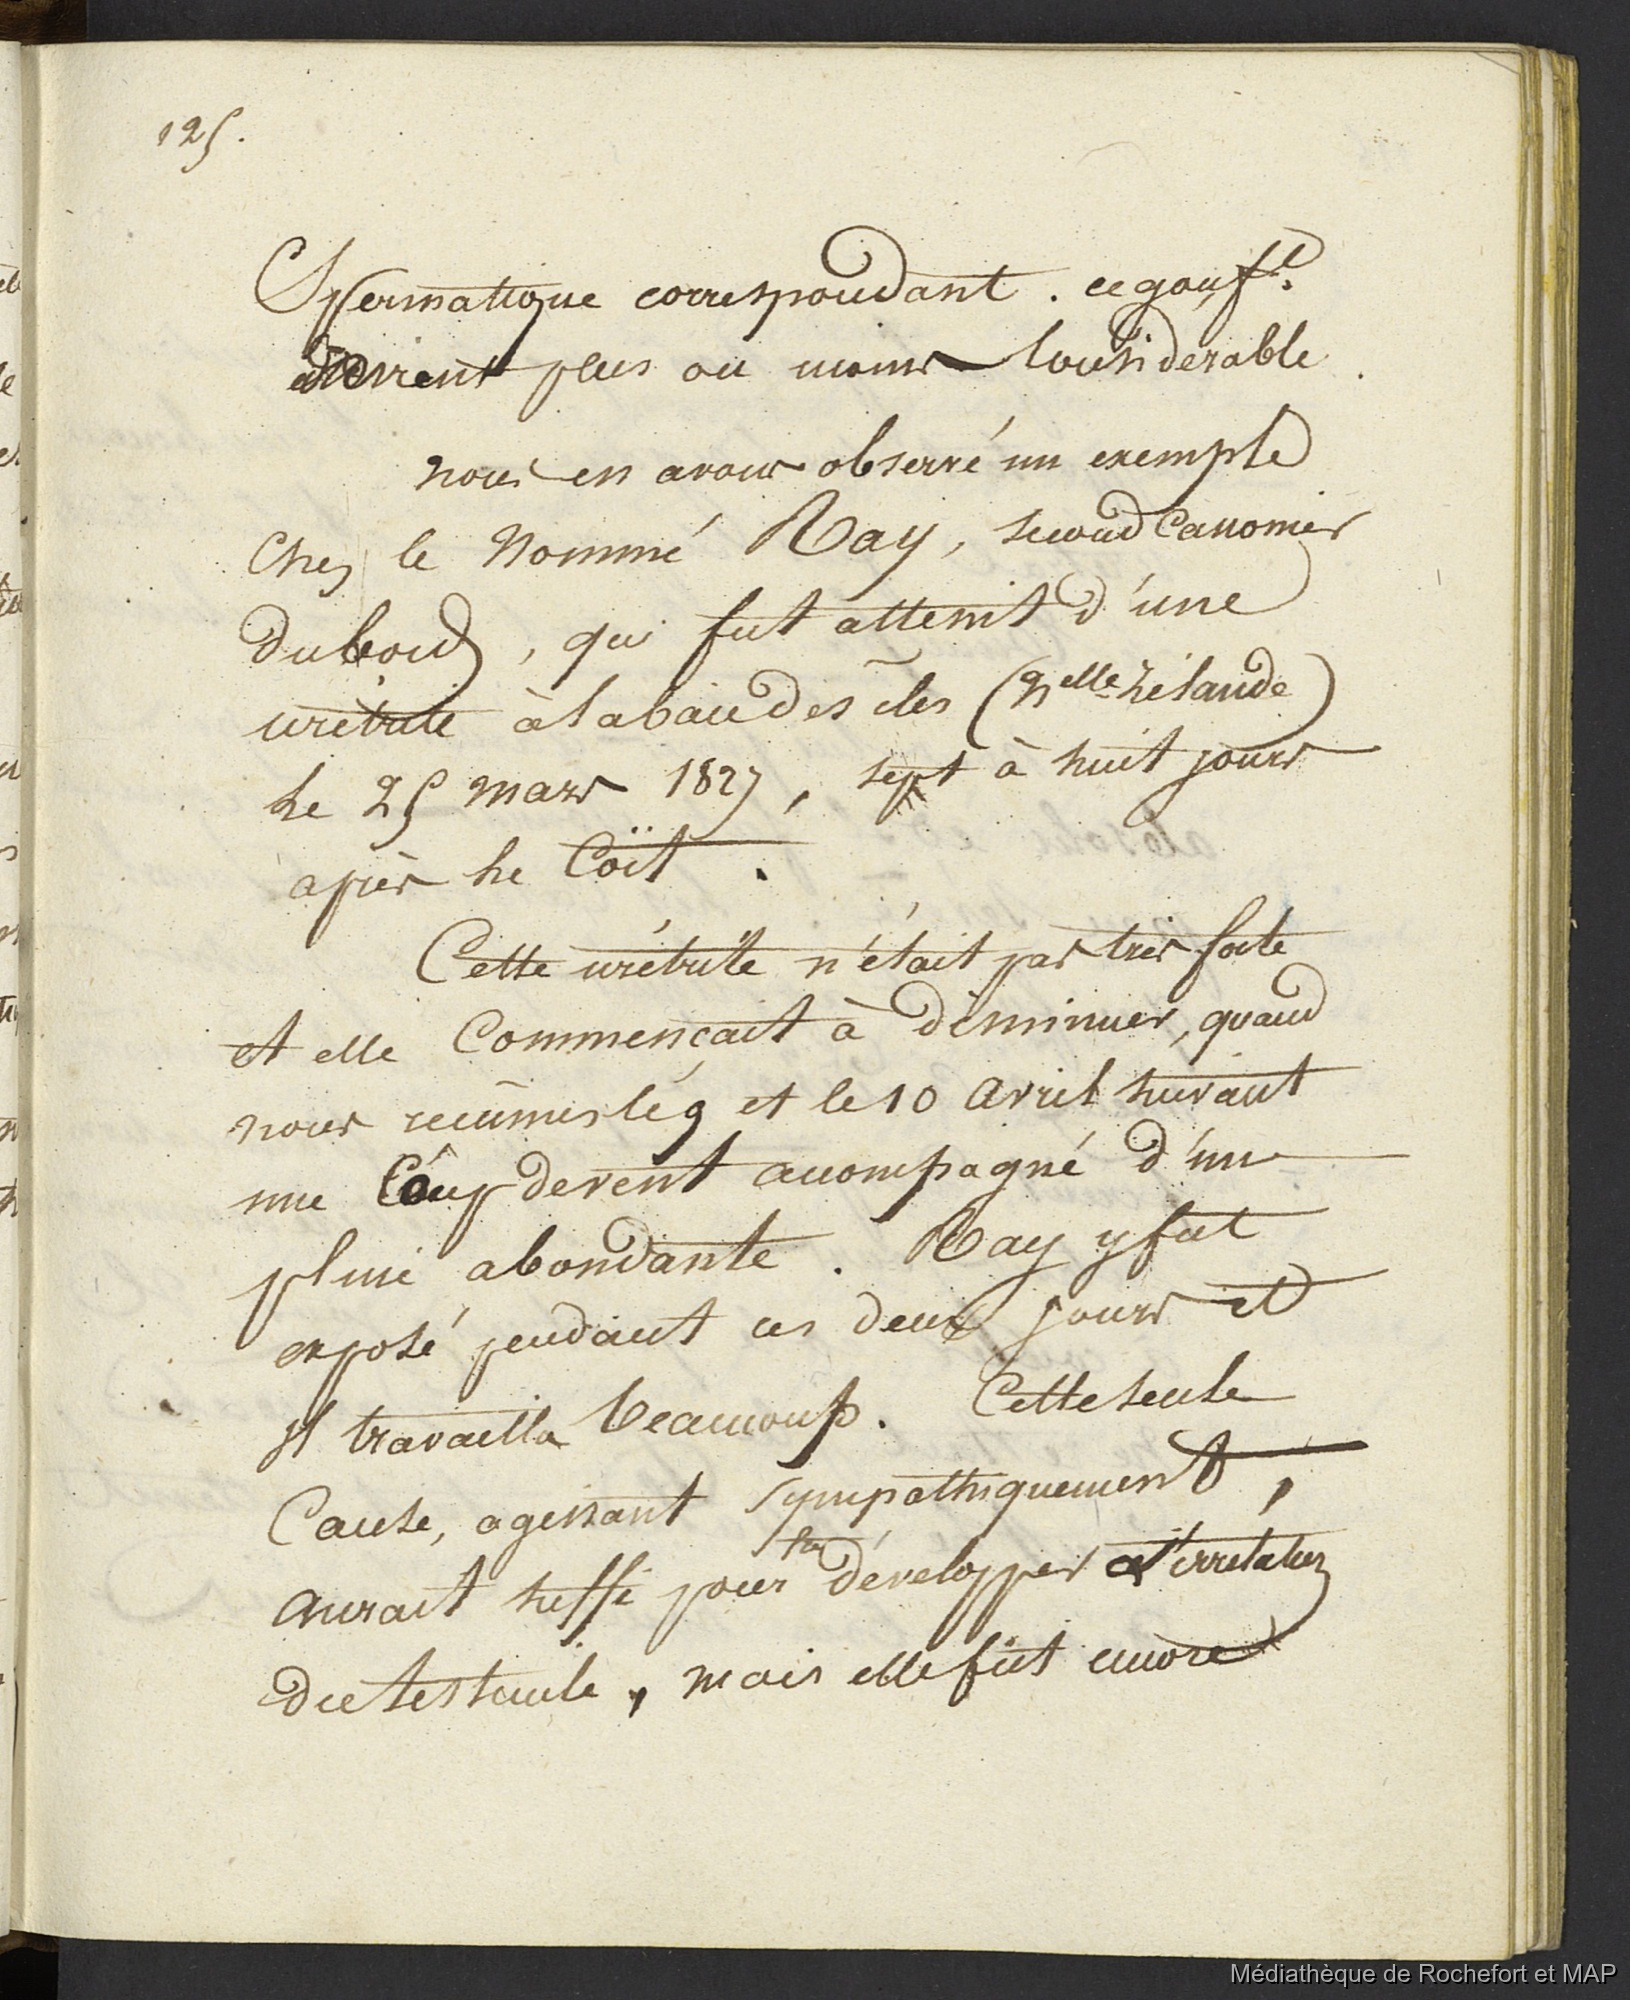 125.
Spermatique correspondant. ce gonf.t
devient plus ou moins Considerable.
nous en avons observé un exemple
Chez le Nommé Ray, second Canonier
du bord, qui fut atteint d'une
urétrite à la baie des iles (N.elle Zélande)
le 25 mars 1827, sept à huit jours
après le Coït.
Cette urétrite n'était pas très forte
et elle Commençait à diminuer, quand
nous reçûmes le 9 et le 10 avril suivant
une Coup de vent acompagné d'une
pluie abondante. Ray y fut
exposé pendant ces deux jours et
il travailla beaucoup. Cette seule
Cause, agissant sympathiquement,
aurait suffi pour développer l'irritation
du testicule, mais elle fut encore
Médiathèque de Rochefort et MAP